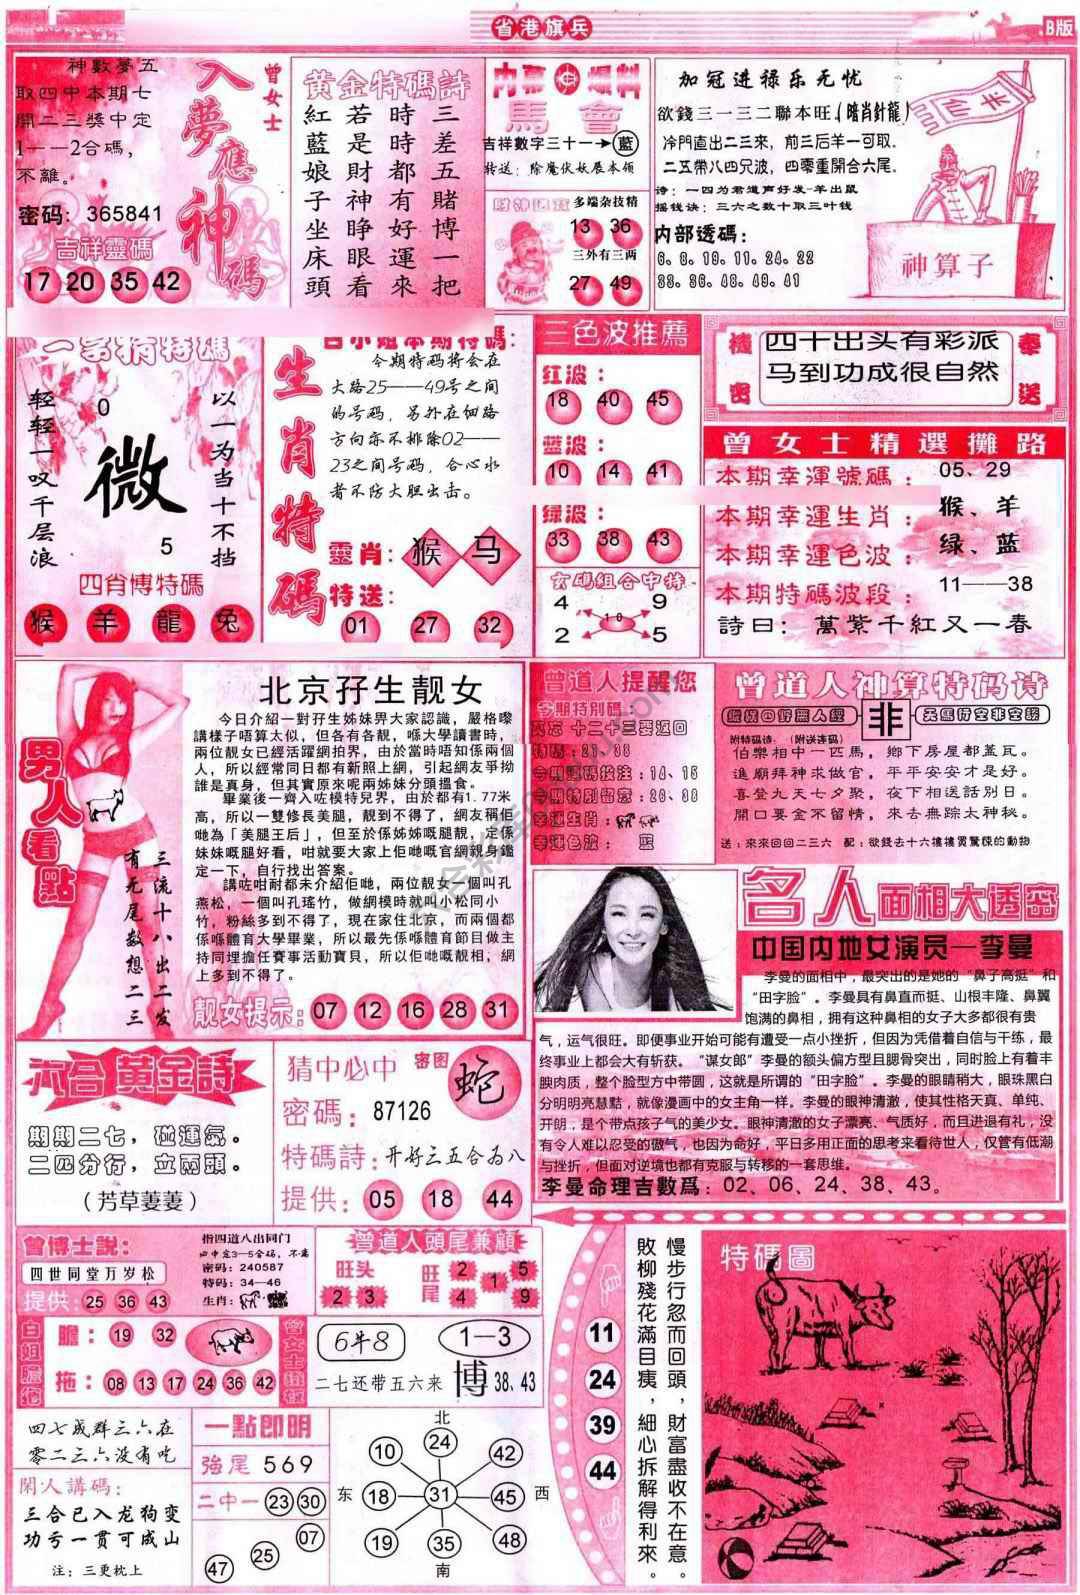 省港旗兵
B版
神數夢五
取四中本期七
開二三獎中定
1——2合碼,
不離。
密码: 365841
吉祥靈碼
17 20 35 42
曾女士
入夢應神碼
黄金特碼詩
三差五賭博一把
時時都有好運來
若是財神睁眼看
紅藍娘子坐床頭
内幕爆料
馬會
吉祥數字三十一→藍
转送: 除魔伏妖展本领
多端杂技精
13 36
三外有三两
27 49
加冠进禄乐无忧
欲錢三一三二聯本旺.(暗肖針龍)
冷門直出二三來, 前三后羊一可取.
二五带八四兄波, 四零重開合六尾.
诗: 一四为君道声好发-羊出鼠
摇钱诀: 三六之数十取三叶钱
内部透碼:
神算子
一字猜特碼
以一为当十不挡
轻轻一叹千层浪
0
微
5
四肖博特碼
猴 羊 龍 兔
生肖特碼
白小姐本期特碼:
今期特码将会在
大路25——49号之间
的号码, 另外在细路
方向亦不排除02——
23之间号码, 合心水
者不防大胆出击。
靈肖: 猴 马
特送:
01 27 32
三色波推薦
红波:
18 40 45
蓝波:
10 14 41
绿波:
33 38 43
玄碼組合中特
4 9
10
2 5
機密
奉送
四十出头有彩派
马到功成很自然
曾女士精選攤路
本期幸運號碼: 05、29
本期幸運生肖: 猴、羊
本期幸運色波: 绿、蓝
本期特碼波段: 11——38
詩曰: 萬紫千紅又一春
男人看點
三流十八出二发
有九尾数想二三
北京孖生靓女
今日介紹一對孖生姊妹畀大家認識，嚴格嚟
講樣子唔算太似，但各有各靚，喺大學讀書時，
兩位靚女已經活躍網拍界，由於當時唔知係兩個
人，所以經常同日都有新照上網，引起網友爭拗
誰是真身，但其實原來呢兩姊妹分頭搵食。
畢業後一齊入咗模特兒界，由於都有1.77米
高，所以一雙修長美腿，靚到不得了，網友稱佢
哋為「美腿王后」，但至於係姊姊嘅腿靚，定係
妹妹嘅腿好看，咁就要大家上佢哋嘅官網親身鑑
定一下，自行找出答案。
講咗咁耐都未介紹佢哋，兩位靚女一個叫孔
燕松，一個叫孔瑤竹，做網模時就叫小松同小
竹，粉絲多到不得了，現在家住北京，而兩個都
係喺體育大學畢業，所以最先係喺體育節目做主
持同埋擔任賽事活動寶貝，所以佢哋嘅靚相，網
上多到不得了。
靓女提示: 07 12 16 28 31
曾道人提醒您
今期特別碼:
曾道人神算特码诗
非
附特码诗: (附送连码)
伯樂相中一匹馬, 鄉下房屋都蓋瓦。
進廟拜神求做官, 平平安安才是好。
喜登九天七夕聚, 夜下相送話別日。
開口要金不留情, 來去無踪太神秘。
送: 來來回回二三六 配: 欲錢去十六樓擒買驚悚的動物
名人面相大透密
中国内地女演员—李曼
李曼的面相中，最突出的是她的“鼻子高挺”和
“田字脸”。李曼具有鼻直而挺、山根丰隆、鼻翼
饱满的鼻相，拥有这种鼻相的女子大多都很有贵
气，运气很旺。即便事业开始可能有遭受一点小挫折，但因为凭借着自信与干练，最
终事业上都会大有斩获。“谋女郎”李曼的额头偏方型且腮骨突出，同时脸上有着丰
腴肉质，整个脸型方中带圆，这就是所谓的“田字脸”。李曼的眼睛稍大，眼珠黑白
分明明亮慧黠，就像漫画中的女主角一样。李曼的眼神清澈，使其性格天真、单纯、
开朗，是个带点孩子气的美少女。眼神清澈的女子漂亮、气质好，而且进退有礼，没
有令人难以忍受的傲气，也因为命好，平日多用正面的思考来看待世人，仅管有低潮
与挫折，但面对逆境也都有克服与转移的一套思维。
李曼命理吉數爲: 02、06、24、38、43。
六合黄金詩
期期二七, 碰運氣。
二四分行, 立兩頭。
(芳草萋萋)
猜中必中
密图
蛇
密碼: 87126
特碼詩: 开好三五合为八
提供: 05 18 44
曾博士説:
四世同堂万岁松
提供: 25 36 43
指四道八出同门
四中定3—5合码, 不离
密码: 240587
特码: 34—46
生肖:
曾道人頭尾兼顧
旺头
2 3
旺尾
2 1 5
4 9
白姐膽拖
膽: 19 32
拖: 08 13 17 24 36 42
6牛8
1—3
二七还带五六来
博 38、43
四七成群三六在
零二三六没有吃
閑人講碼:
三合已入龙狗变
功亏一贯可成山
注: 三更枕上
一點即明
強尾 569
二中一 23 30
07
25
47
北
24
10 42
东 18 31 45 西
19 48
35
南
11
24
39
44
慢步行忽而回頭, 財富盡收不在意。
敗柳殘花滿目痍, 細心拆解得利來。
特碼圖